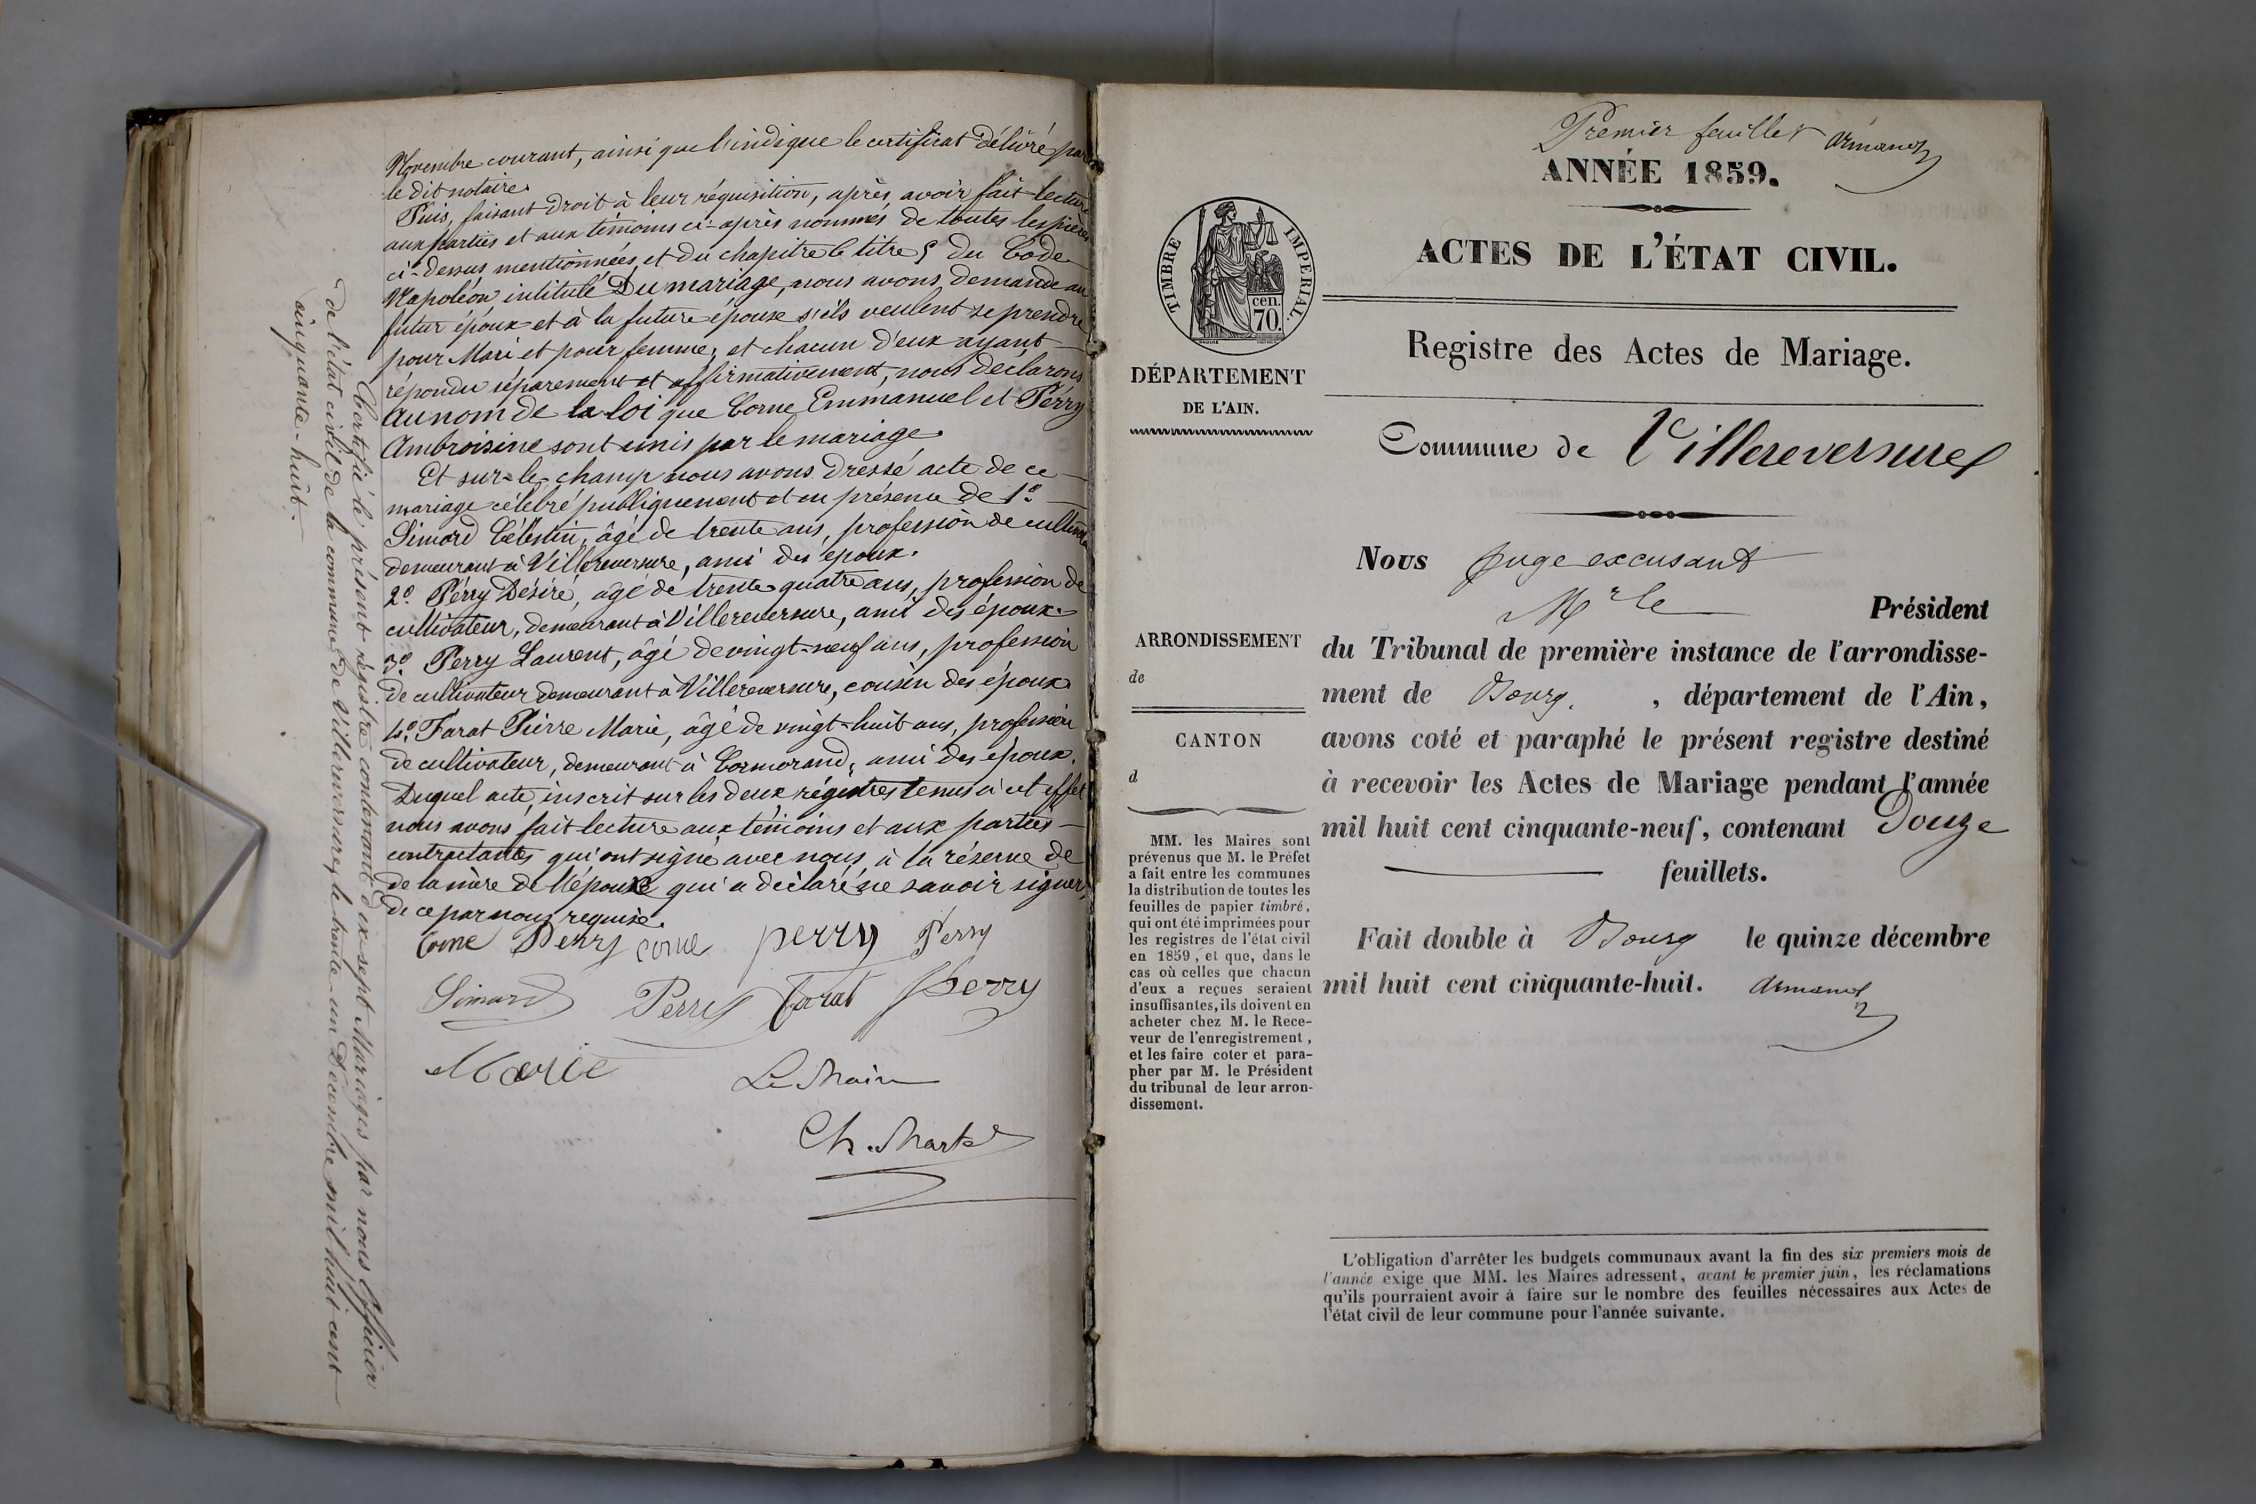 Novembre courant, ainsi que l'indique le certificat délivré par
le dit notaire.
Puis, faisant droit à leur réquisition, après avoir fait lecture
aux parties et aux témoins ci-après nommés de toutes les pièces
ci-dessus mentionnées, et du chapitre 6 titre 5 du Code
Napoléon intitulé Du mariage, nous avons demandé au
futur époux et à la future épouse s'ils veulent se prendre
pour Mari et pour femme, et chacun d'eux ayant
répondu séparement et affirmativement, nous déclarons
au nom de la loi que Corne Emmanuel et Pérry
Ambroisine sont unis par le mariage.
Et sur-le-champ nous avons dressé acte de ce
mariage célébré publiquement et en présence de 1º
Simard Célestin, âgé de trente ans, profession de
demeurant à Villereversure, ami des époux.
2º Pérry Désiré, âgé de trente quatre ans, profession de
cultivateur, demeurant à Villereversure, ami des époux.
3º Perry Laurent, âgé de vingt-neuf ans, profession
de cultivateur demeurant à Villereversure, cousin des époux.
4º Farat Pierre Marie, âgé de vingt-huit ans, profession
de cultivateur, demeurant à Cormorand, ami des époux.
Duquel acte, inscrit sur les deux régistres tenus à cet effet
nous avons fait lecture aux témoins et aux parties
contractantes qui ont signé avec nous à la réserve de
de la mère de l'épouse qui a déclaré ne savoir signer,
de ce par nous requise.
Corne Perry corne perry Perry
Simard Perry farat perry
Marie Le Maire
Ch. Martel
Certifié le présent régistre contenant dix-sept Mariages par nous Officier
de l'état civil de la commune de Villereversure, le trente-un Décembre mil huit cent
cinquante-huit.
Premier feuillet Armand
ANNÉE 1859.
ACTES DE L'ÉTAT CIVIL.
TIMBRE IMPERIAL.
cen.
70.
Registre des Actes de Mariage.
DÉPARTEMENT
DE L'AIN.
Commune de Villereversure
Nous Juge excusant
Mr le Président
du Tribunal de première instance de l'arrondisse-
ment de Bourg. , département de l'Ain,
avons coté et paraphé le présent registre destiné
à recevoir les Actes de Mariage pendant l'année
mil huit cent cinquante-neuf, contenant Douze
feuillets.
Fait double à Bourg le quinze décembre
mil huit cent cinquante-huit. Armand
ARRONDISSEMENT
de
CANTON
d
MM. les Maires sont
prévenus que M. le Préfet
a fait entre les communes
la distribution de toutes les
feuilles de papier timbré,
qui ont été imprimées pour
les registres de l'état civil
en 1859, et que, dans le
cas où celles que chacun
d'eux a reçues seraient
insuffisantes, ils doivent en
acheter chez M. le Rece-
veur de l'enregistrement,
et les faire coter et para-
pher par M. le Président
du tribunal de leur arron-
dissement.
L'obligation d'arrêter les budgets communaux avant la fin des six premiers mois de
l'année exige que MM. les Maires adressent, avant le premier juin, les réclamations
qu'ils pourraient avoir à faire sur le nombre des feuilles nécessaires aux Actes de
l'état civil de leur commune pour l'année suivante.